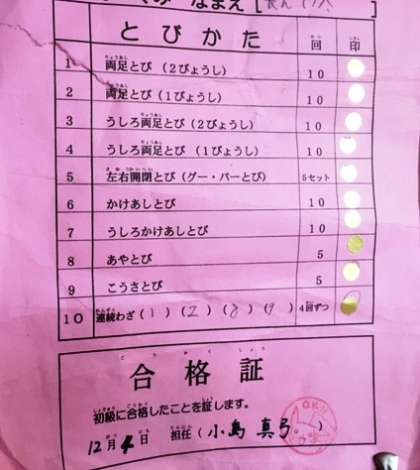 なまえ [
とびかた 回 印
1 両足とび（2びょうし） 10
2 両足とび（1びょうし） 10
3 うしろ両足とび（2びょうし） 10
4 うしろ両足とび（1びょうし） 10
5 左右開閉とび（グー・パーとび） 5セット
6 かけあしとび 10
7 うしろかけあしとび 10
8 あやとび 5
9 こうさとび 5
10 連続わざ（1）（2）（8）（9） 4回ずつ
合格証
初級に合格したことを証します。
12月4日 担任（小島 真弓。）